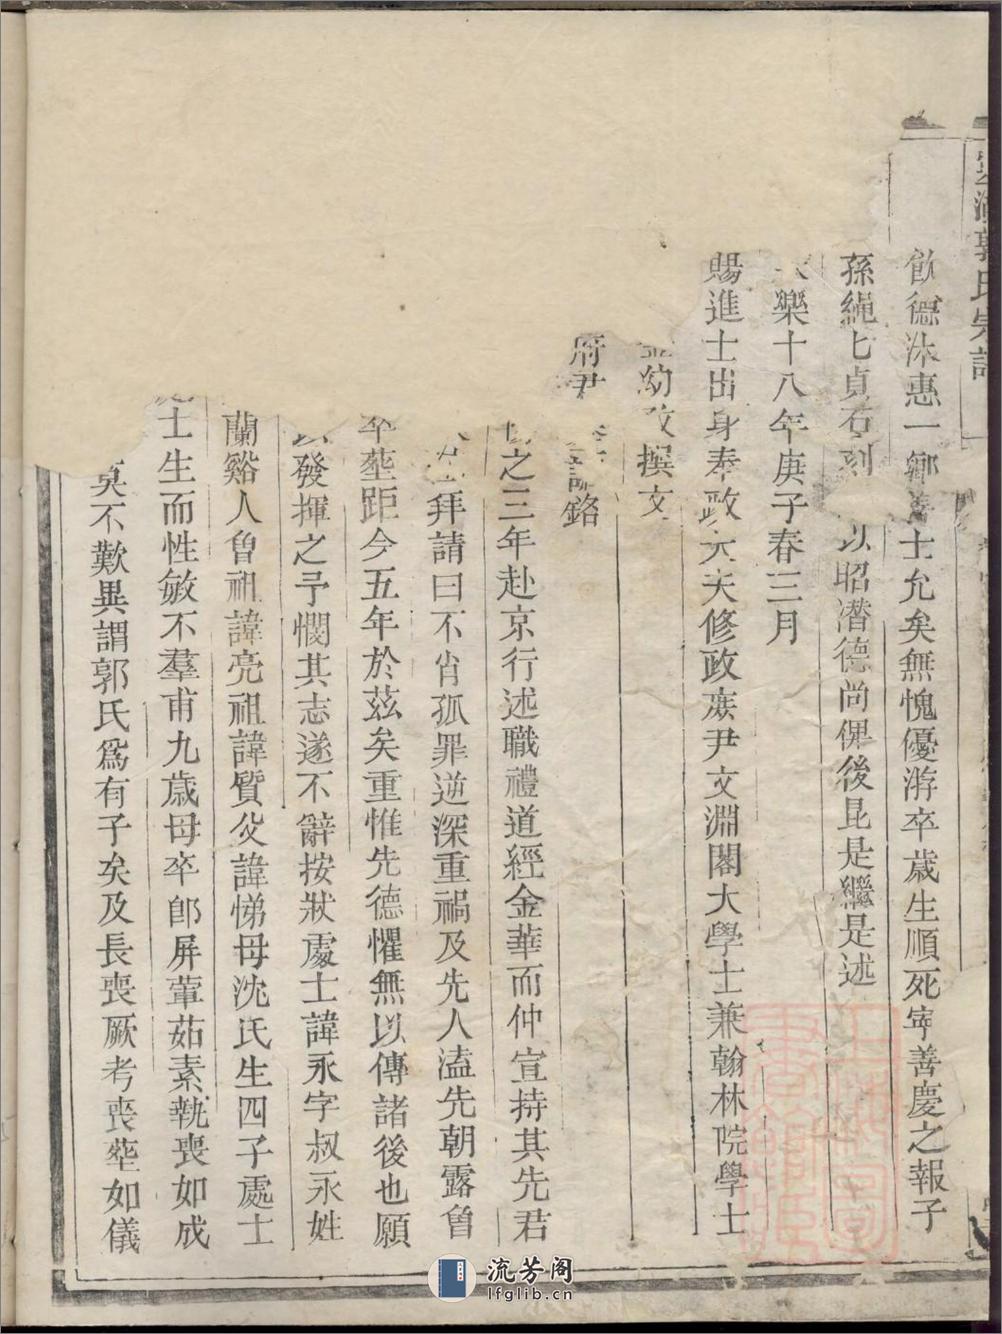 郭氏宗譜
飲德沐惠一鄉善士允矣無愧優游卒歲生順死寧善慶之報子
孫繩七貞石刻以昭潛德尚俾後昆是繼是述
樂十八年庚子春三月
賜進士出身奉政大夫修政庶尹文淵閣大學士兼翰林院學士
金幼孜撰文
府尹誌銘
之三年赴京行述職禮道經金華而仲宣持其先君
拜請曰不肖孤罪逆深重禍及先人溘先朝露曾
卒塟距今五年於茲矣重惟先德懼無以傳諸後也願
以發揮之予憫其志遂不辭按狀處士諱永字叔永姓
蘭谿人曾祖諱亮祖諱質父諱悌母沈氏生四子處士
處士生而性敏不羣甫九歲母卒卽屏葷茹素執喪如成
莫不歎異謂郭氏爲有子矣及長喪厥考喪塟如儀
流芳阁
lfglib.cn